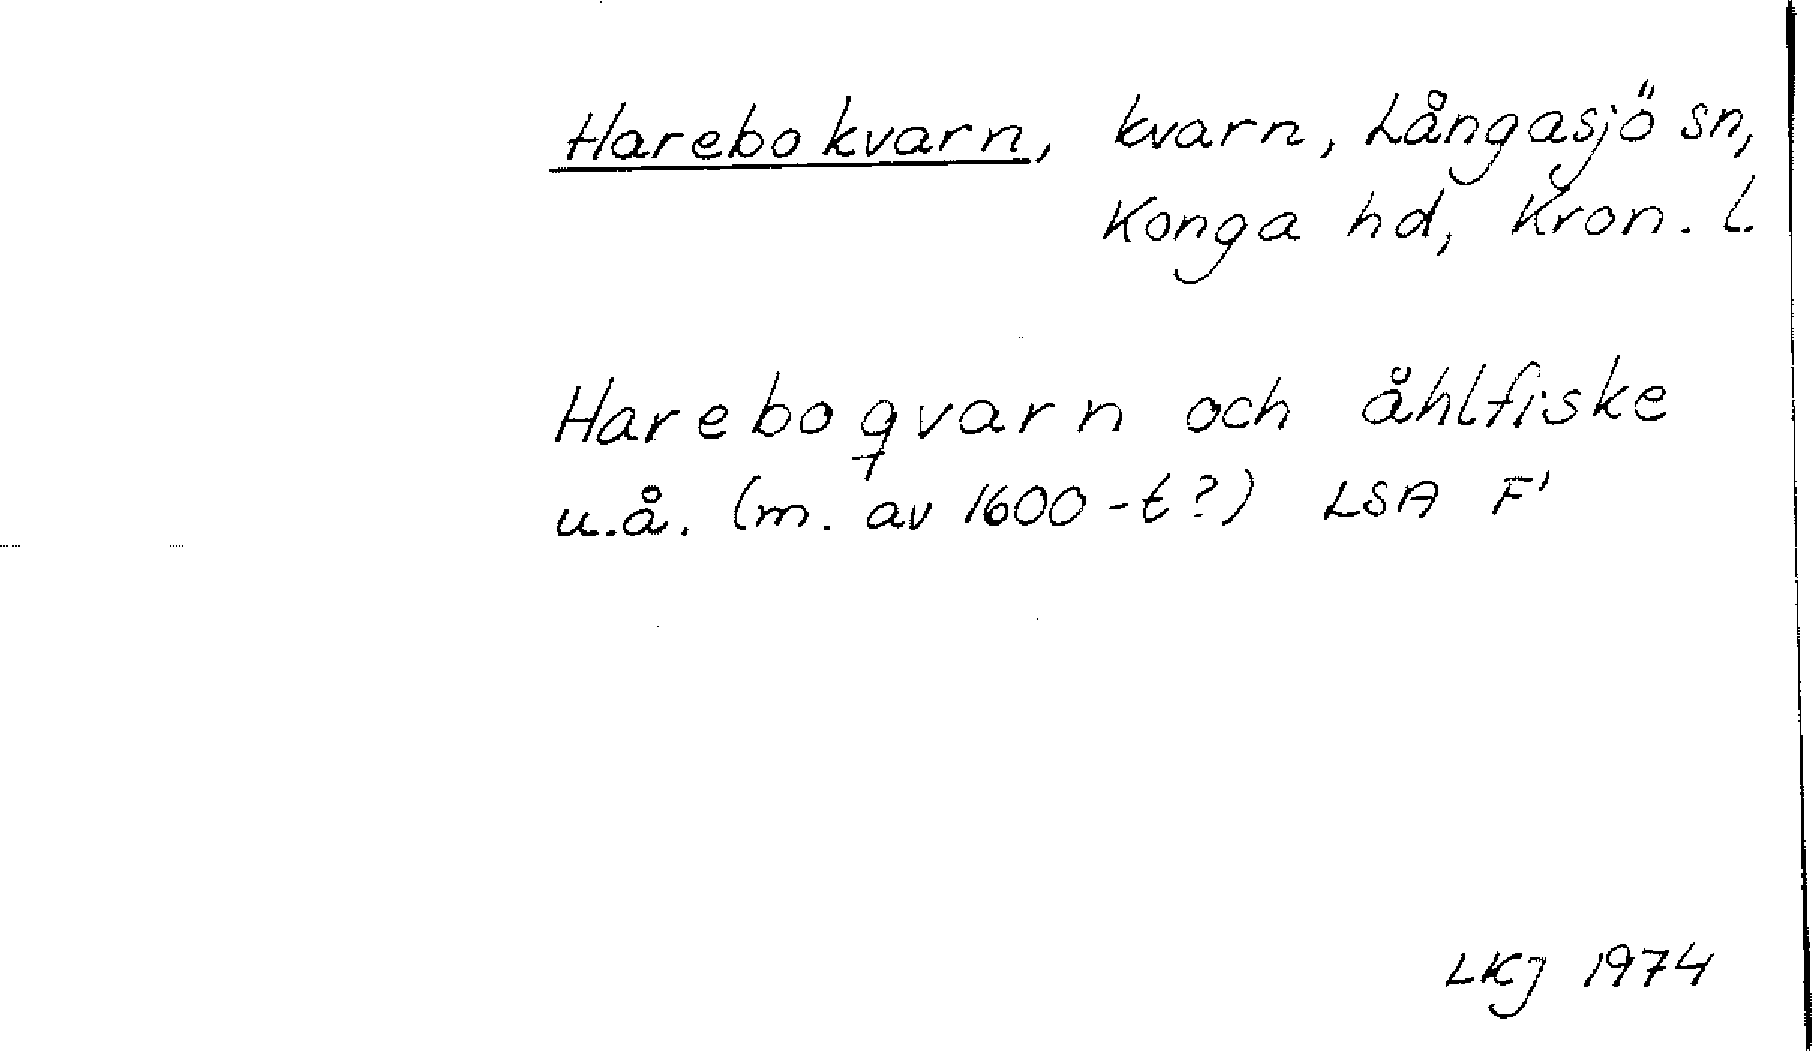 Harebo kvarn, kvarn, Långasjö sn,
Konga hd, Kron. l.
Harebo qvarn och åhlfiske
u.å. (m. av 1600-t?) LSA F'
LKJ 1974